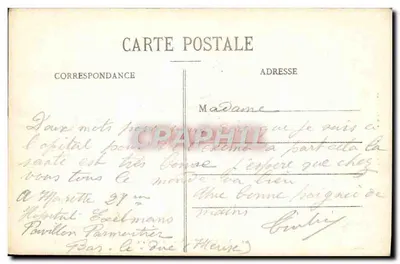 CARTE POSTALE
CORRESPONDANCE
ADRESSE
Madame
Deux mots pour que je suis à
l'opital pour a part cela la
santé est très bonne j'espère que chez
vous tous le monde va bien
Une bonne poignée de
mains
A Musette 29
Hopital Exelmans
Pavillon Parmentier
Bar-le-duc (Meuse)